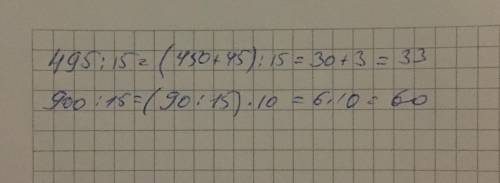 495:15=(450+45):15=30+3=33
900:15=(90:15)·10=6·10=60